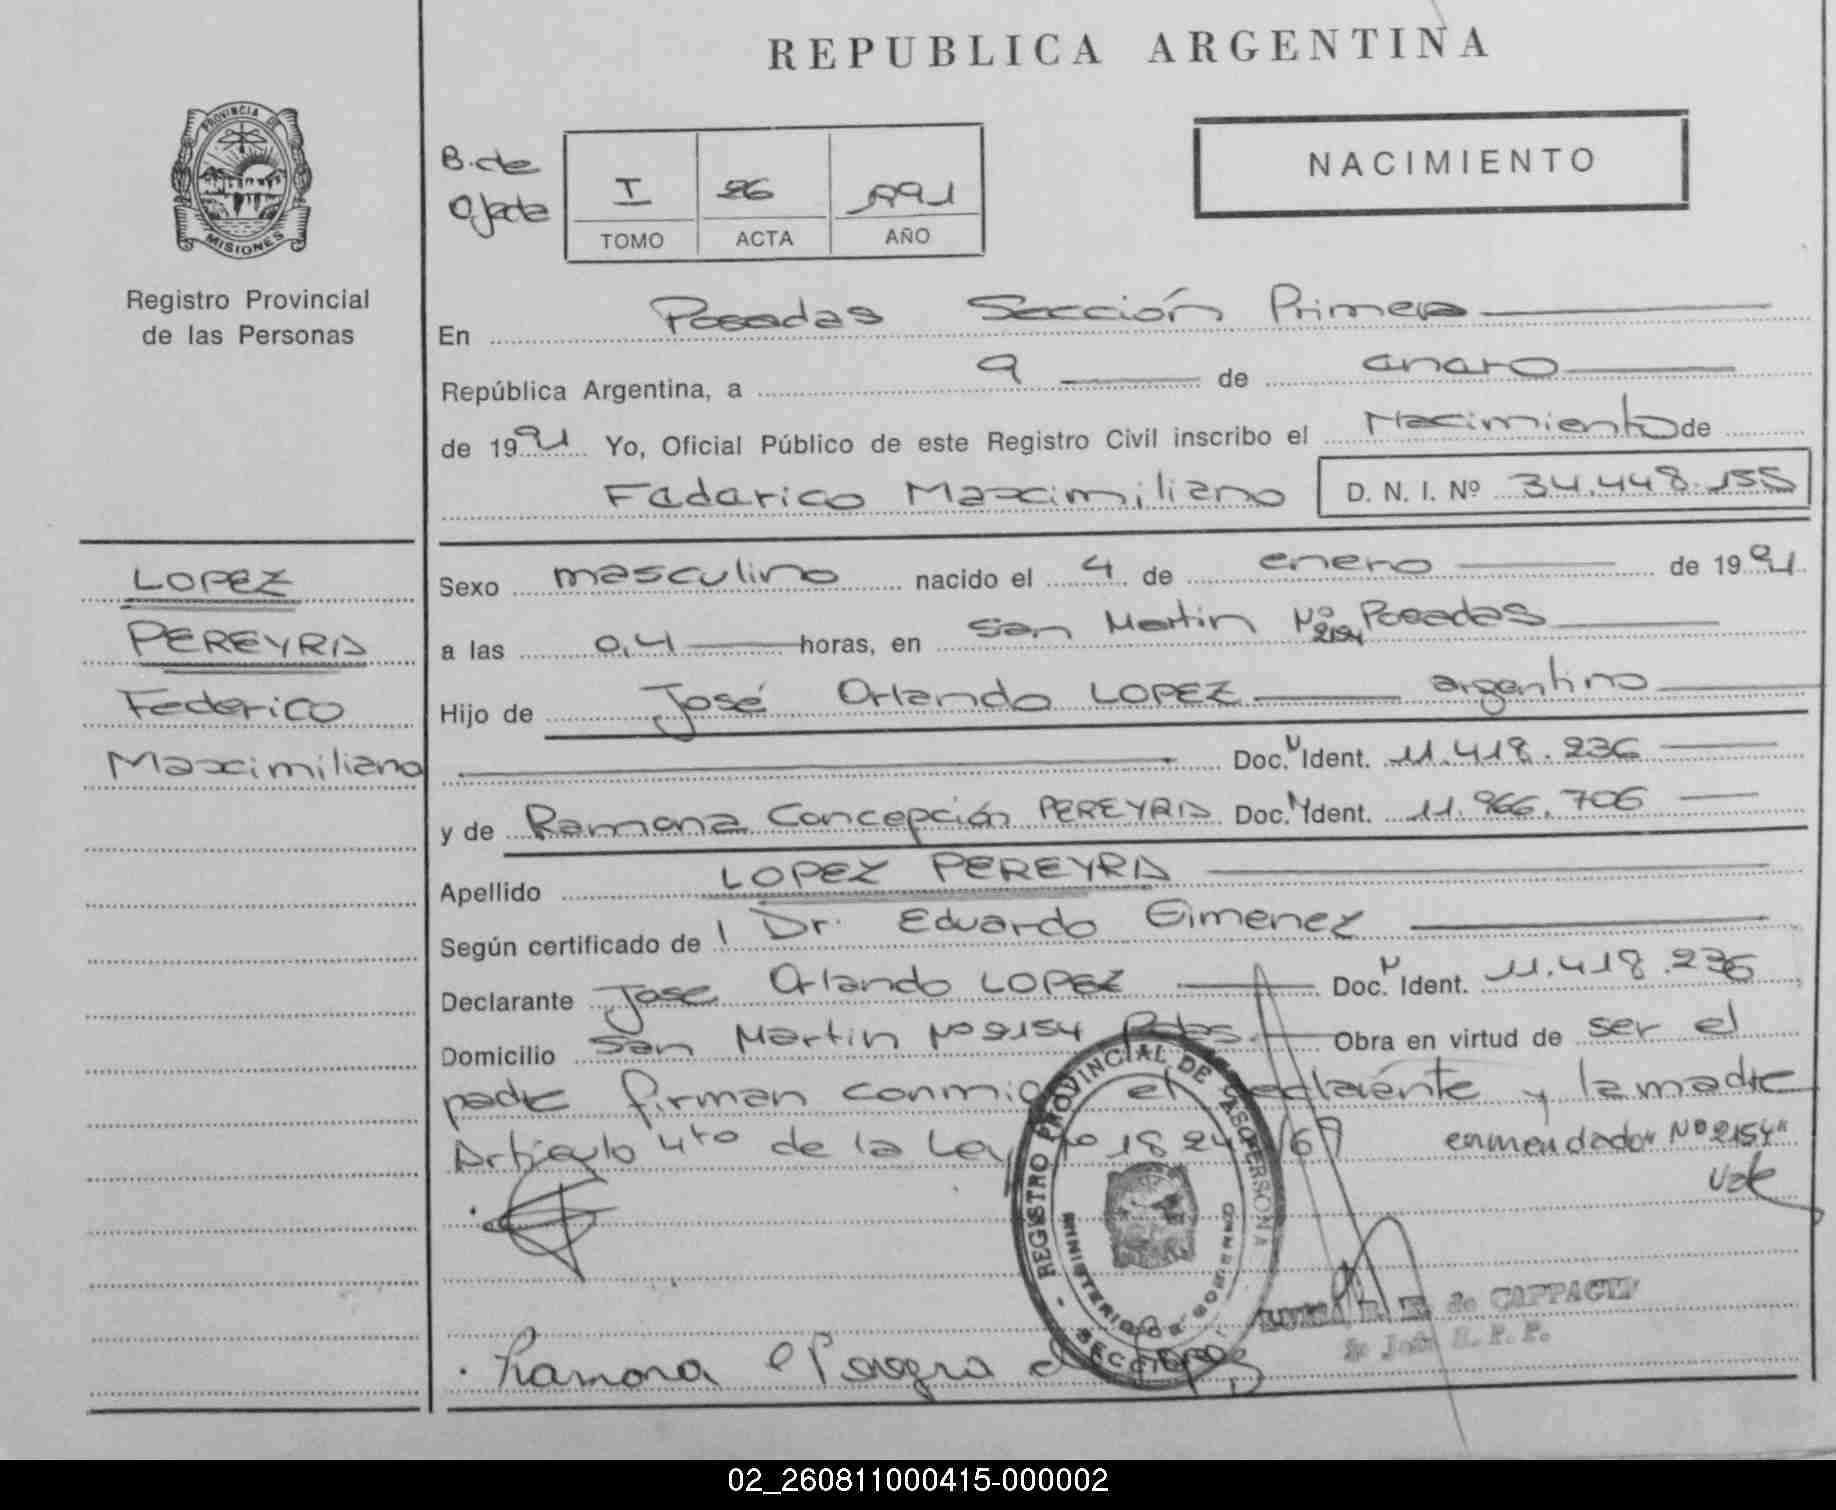 REPUBLICA ARGENTINA
PROVINCIA DE
MISIONES
Registro Provincial
de las Personas
B. de
Ojeda
I 26 1991
TOMO ACTA AÑO
NACIMIENTO
En Posadas Sección Primera
República Argentina, a 9 de enero
de 1991 Yo, Oficial Público de este Registro Civil inscribo el Nacimiento de
Federico Maximiliano D. N. I. Nº 34.448.155
LOPEZ
PEREYRA
Federico
Maximiliano
Sexo masculino nacido el 4 de enero de 1991
a las 0,4 horas, en San Martin Nº 2154 Posadas
Hijo de José Orlando LOPEZ argentino
Doc. N Ident. 11.418.236
y de Ramona Concepción PEREYRA Doc. N Ident. 11.966.706
Apellido LOPEZ PEREYRA
Según certificado de Dr. Eduardo Gimenez
Declarante Jose Orlando LOPEZ Doc. N Ident. 11.418.236
Domicilio San Martin Nº 2154 Pdas. Obra en virtud de ser el
padre firman conmigo el declarante y la madre
Artículo 4to de la Ley Nº 18.24 /69 enmendado "Nº 2154"
Vale
REGISTRO PROVINCIAL DE LAS PERSONAS
MINISTERIO DE GOBIERNO
SECCION
de CAPPAGLI
Ramona C Pereyra de
02_260811000415-000002